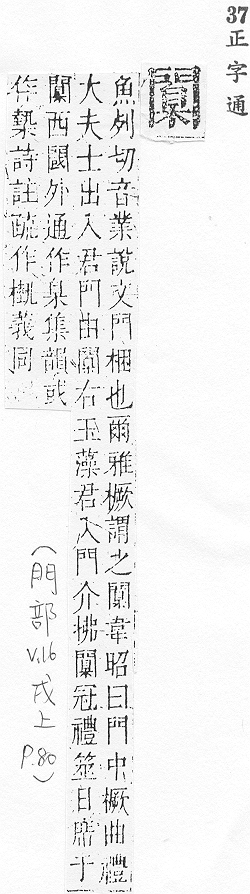 37正字通
闑
魚列切音業說文門梱也爾雅橛謂之闑韋昭曰門中橛曲禮
大夫士出入君門由闑右玉藻君入門介拂闑冠禮筮日席于
闑西閾外通作臬集韻或
作槷詩註疏作𣙗義同
(門部 V.16 戌上 P.80)